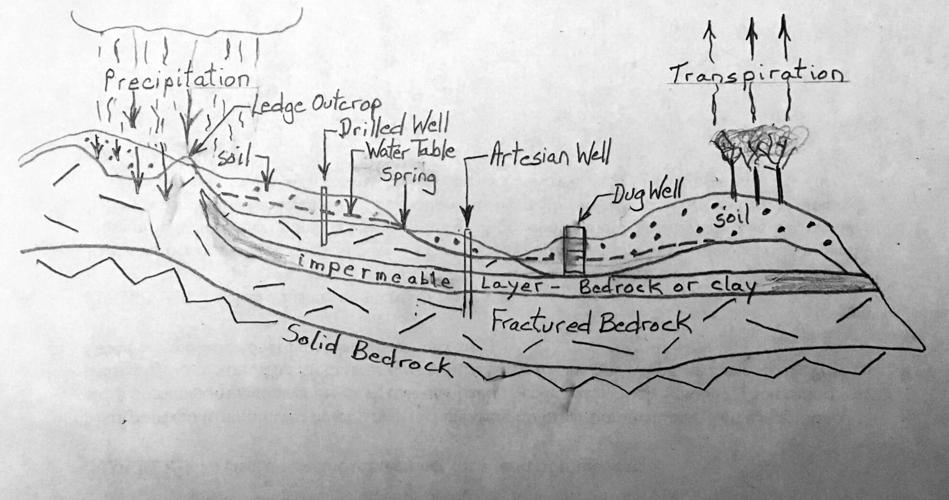 Precipitation
Transpiration
Ledge Outcrop
Drilled Well
Water Table
soil
Spring
Artesian Well
Dug Well
soil
impermeable Layer - Bedrock or clay
Fractured Bedrock
Solid Bedrock